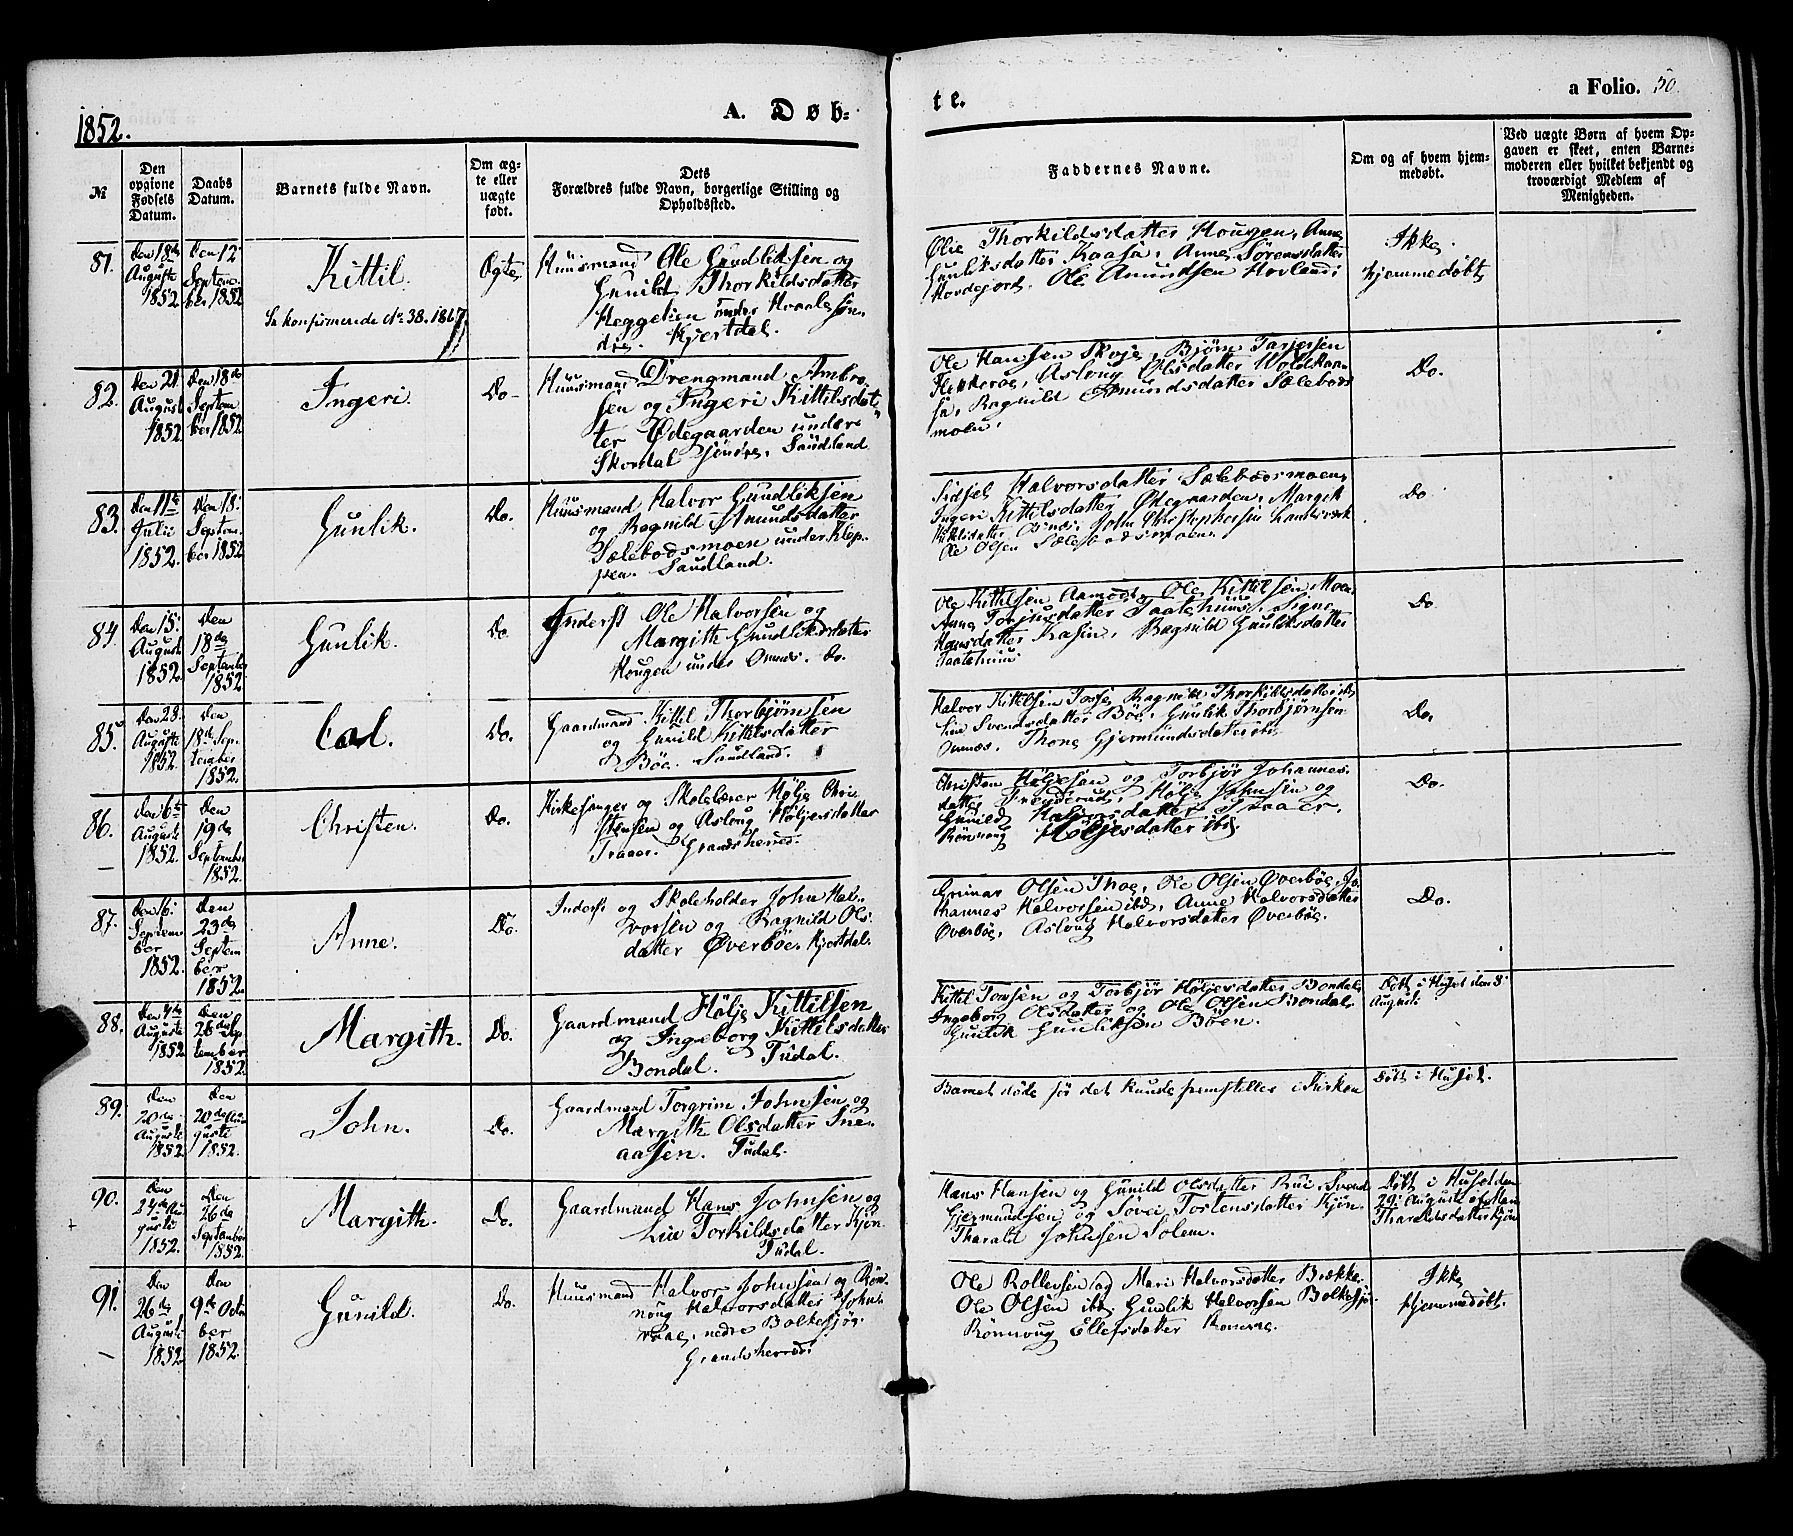 1852.
A. Døb-
te.
a Folio. 50.
№
Den opgivne Fødsels Datum.
Daabs Datum.
Barnets fulde Navn.
Om ægte eller uægte født.
Dets Forældres fulde Navn, borgerlige Stilling og Opholdssted.
Faddernes Navne.
Om og af hvem hjemmedøbt.
Ved uægte Børn af hvem Opgaven er skeet, enten Barnemoderen eller hvilket bekjendt og troværdigt Medlem af Menigheden.
81.
Den 18de
August
1852
Den 12
Septem-
ber 1852
Kittil.
Se konfirmerede No 38. 1867
Ægte
Huusmand Ole Gundliksen og
Gunild Thorkildsdatter
Heggelien under Hvaale søn-
dre. Hjertdal.
Thorkildsdatter Hougen, Anne
Gunliksdatter Kaasa, Anne Sørensdatter
Hovdejord, Ole Amundsen Hovland
Ikke
hjemmedøbt
82.
Den 21
August
1852
Den 18de
Septem
ber 1852
Ingeri.
Do-
Huusmand Drengmand Ambro-
sen og Ingeri Kittilsdat-
ter Ødegaarden under
Skordal søndre, Saudland
Ole Hansen Skoje, Bjørn Tarjersen
Asloug Olsdatter
Ragnild Amundsdatter Sælebods
moen.
Do.
83.
Den 11te
Julii
1852.
Den 18
Septem-
ber 1852
Gunlik.
Do.
Huusmand Halvor Gundliksen
og Ragnild Amundsdatter
Sælebodsmoen under Klep-
pen. Saudland.
Sidsel Halvorsdatter Sælebodsmoen,
Ingeri Kittilsdatter Ødegaarden, Margit
Kittilsdatter Omnes, John Christophersen
Ole Olsen Sælebodsmoen.
Do.
84.
Den 15
August
1852
Den
18de
September
1852
Gunlik.
Do
Inderst Ole Halvorsen og
Margith Gundliksdatter
Hougen under Omnes. do.
Ole Kittilsen Aamodt, Ole Kittilsen Moen
Anne Torjusdatter
Hansdatter Kasin, Ragnild Gunliksdatter
Do
85.
Den 28.
August
1852.
Den
18de Sep-
tember
1852.
Do.
Gaardmand Kittil Thorbjørnsen
og Gunild Kittilsdatter
Bøe. Saudland.
Halvor Kittilsen Ragnild Thorkildsdatter ibd.
Liv Svendsdatter Bøe, Gunlik Thorbjørnsen
Omnæs, Thone Gjermundsdatter ibd.
Do.
86.
Den 6te
August
1852.
Den
19de
September
1852.
Christen.
Do.
Kirkesanger og Skolelærer Hølje Chri-
stensen og Aslaug Høljesdatter
Traaer. Grandsherred.
Christen Høljesen og Torbjør Johannes-
datter Hølje Johnsen og
Gunild Halvorsdatter Traaer,
Rønnoug Høljesdatter ibd.
Do.
87.
Den 6
Septem
ber
1852.
Den
23de
Septem
ber
1852.
Anne.
Do.
Inderst og Skoleholder John Hal-
vorsen og Ragnild Ols-
datter Øverbøe. Hjertdal.
Gunnar Olsen Thoe, Ole Olsen Øverbøe, Jo-
hannes Halvorsen ibd, Anne Halvorsdatter
Øverbøe, Aslaug Halvorsdatter Øverbøe.
Do.
88.
August
1852
Den
26de Sep
tember
1852.
Margith.
Do.
Gaardmand Hølje Kittilsen
og Ingeborg Kittilsdatter
Bondal. Tudal.
Kittil Torsen og Torbjør Høljesdatter Bondal,
Ingeborg Olsdatter og Ole Olsen Bondal,
Gunlik Gunliksen Bøen.
Døbt i Huset den 8
August.
89.
Den
20de
August
1852
Den
20de Au
gust
1852.
John.
Do.
Gaardmand Torgrim Johnsen og
Margith Olsdatter Sne-
aasen. Tudal.
Barnet døde før det kunde fremstilles i Kirken
Døbt i Huset.
90.
Den
24de Au
gust
1852.
Den
26de
September
1852.
Margith.
Do.
Gaardmand Hans Johnsen og
Liv Torkildsdatter Kjøn-
Tudal.
Hans Hansen og Gunild Olsdatter Rui, Svend
Gjermundsen og Torstensdatter Kjøn-
Tharald Johnsen Solem.
Døbt i Huset den
29 August af
Tharaldsdatter Kjøn
91.
Den
26de
August
1852
Den
9de Octo
ber
1852.
Gunild.
Do.
Huusmand Halvor Johnsen og Røn-
noug Halvorsdatter Johns-
nedre Bolkesjø.
Grandsherred.
Ole Rollevsen og Mari Halvorsdatter Brække,
Ole Olsen ibd. Gunlik Halvorsen Bolkesjø.
Rønnoug Ellefsdatter
Ikke
hjemmedøbt.